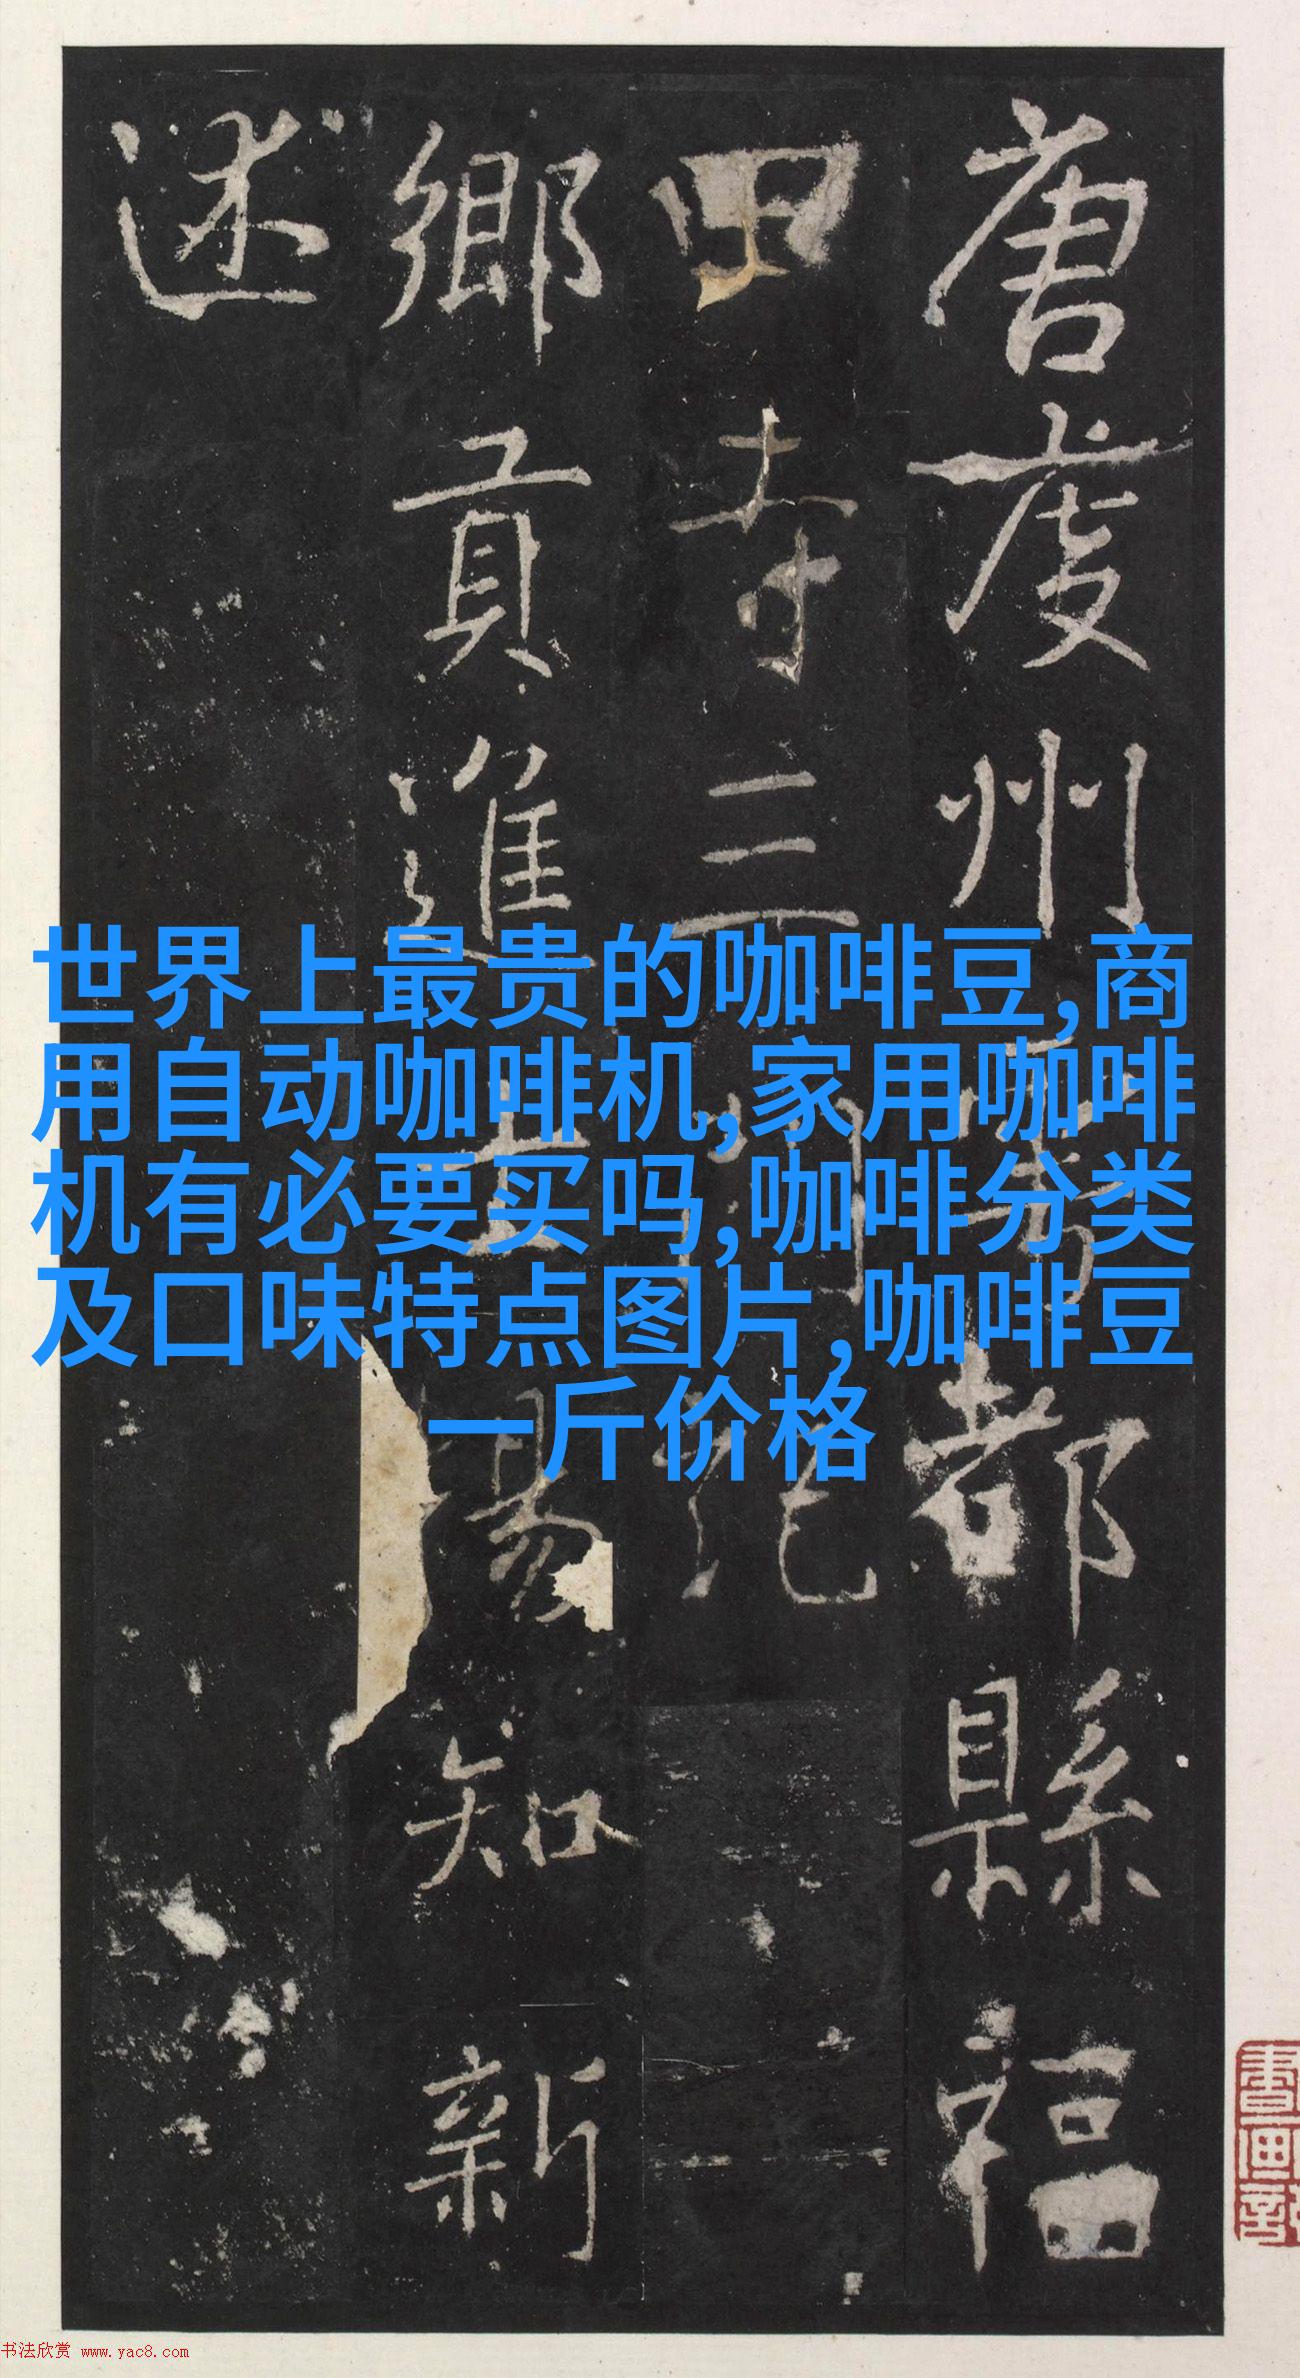 唐虔州雩都縣福
田寺三門
鄉貢進士易知新
述
世界上最贵的咖啡豆,商
用自动咖啡机,家用咖啡
机有必要买吗,咖啡分类
及口味特点图片,咖啡豆
一斤价格
書画
书法欣赏 www.yac8.com